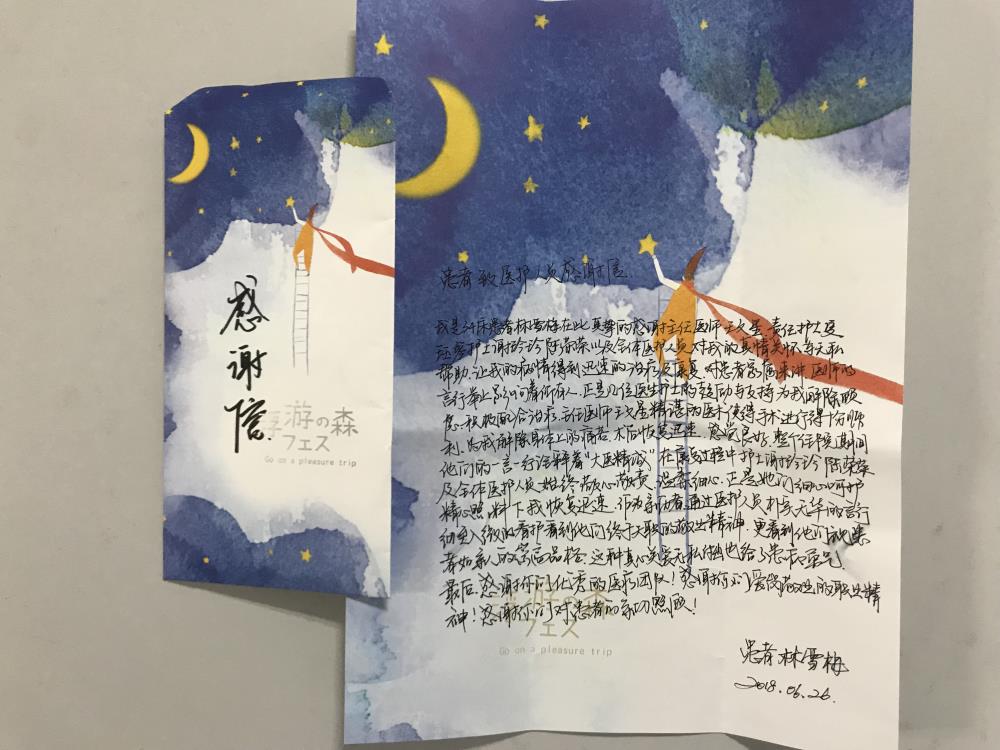 感谢信
游の森
フェス
Go on a pleasure trip
患者致医护人员感谢信
我是 床患者林雪梅在此真挚的感谢主任医师 责任护士
护士谢 陈 以及全体医护人员对我的真情关怀与无私
帮助,让我的病情得到迅速的治疗及康复,对患者家属来讲,医师的
言行举止 影响着所有人,正是几位医生护士的鼓励与支持为我解除顾
虑,积极配合治疗,主任医师 精湛的医术使得手术进行得十分顺
利,为我解除身体上的痛苦,术后恢复迅速,感觉良好,整个住院期间
他们的一言一行诠释着“大医精诚”在康复过程中护士谢 陈
及全体医护人员始终 心 责, 细心,正是她们细心呵护
精心照料下我恢复迅速,作为亲历者,通过医护人员朴实无华的言行
细致入微的看护看到他们 天职的敬业精神,更看到他们视患
者如亲人的 高品格,这种真心关爱无私 也给了患者
最后,感谢你们优秀的医疗团队!感谢你们爱岗敬业的职业精
神!感谢你们对患者的亲切照顾!
游の森
フェス
Go on a pleasure trip
患者 林雪梅
2018.06.26.